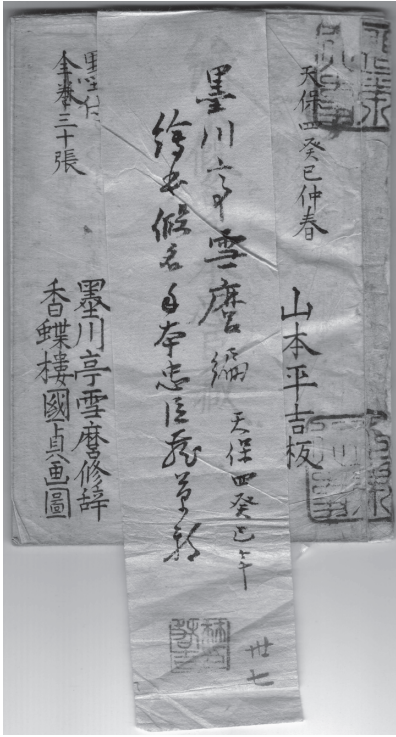 天保四癸巳仲春
山本平吉板
墨川亭雪麿編
天保四癸巳年
繪本假名手本忠臣蔵草稿
墨付
全巻三十張
墨川亭雪麿修辞
香蝶樓國貞画圖
卅七